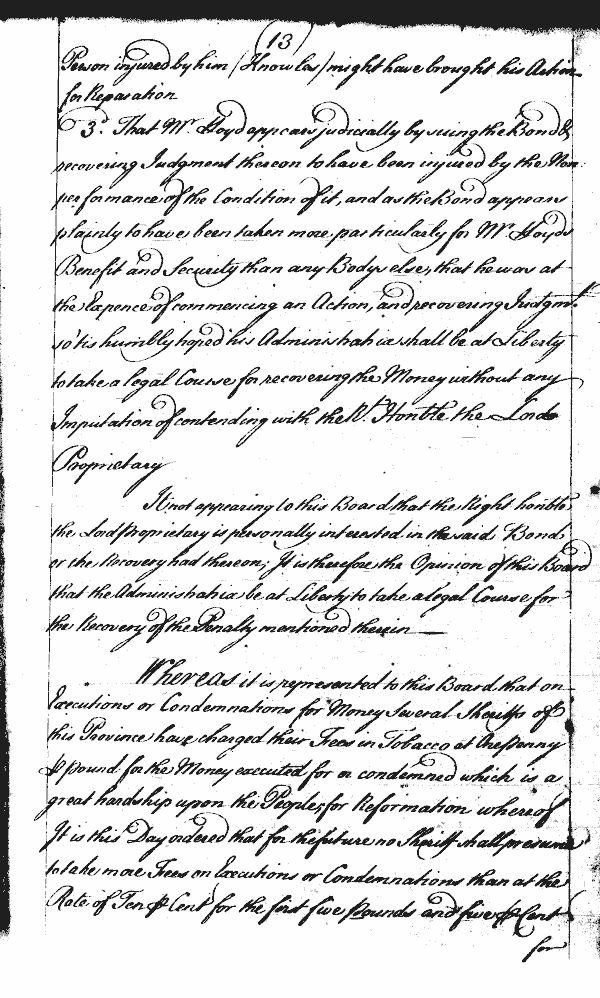 (13)
Person injured by him (Knowles) might have brought his Action
for Reparation
3d. That Mr. Lloyd appears judicially by suing the Bond &
recovering Judgment thereon to have been injured by the Non
performance of the Condition of it, and as the Bond appears
plainly to have been taken more particularly for Mr Lloyds
Benefit and Security than any Bodys else, that he was at
the Expence of commencing an Action, and recovering Judgmt.
so 'tis humbly hoped his Administratrix shall be at Liberty
to take a legal Course for recovering the Money without any
Imputation of contending with the Rt. Honble the Lord
Proprietary
It not appearing to this Board that the Right honble
the Lord Proprietary is personally interested in the said Bond
or the Recovery had thereon; It is therefore the Opinion of this Board
that the Administratrix be at Liberty to take a legal Course for
the Recovery of the Penalty mentioned therein
Whereas it is represented to this Board that on
Executions or Condemnations for Money Several Sheriffs of
this Province have charged their Fees in Tobacco at One penny
⅌ pound for the Money executed for or condemned which is a
great hardship upon the People, for Reformation whereof
It is this Day ordered that for the future no Sheriff shall presume
to take more Fees on Executions or Condemnations than at the
Rate of Ten ⅌ Cent for the first five Pounds and five ⅌ Cent
for